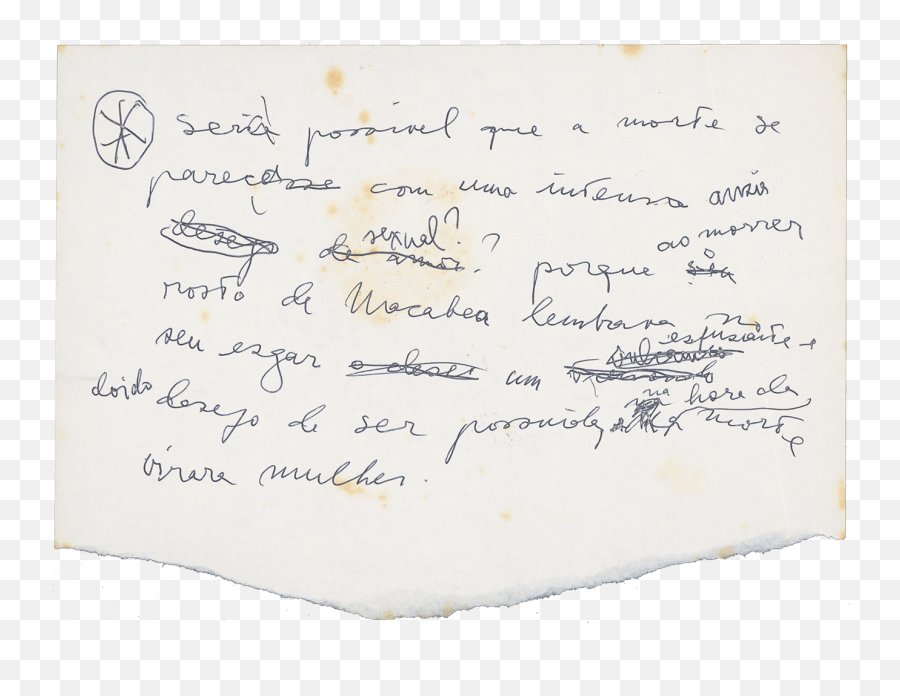 será possível que a morte se
pareça com uma intensa ânsia
sexual?
de amor? ? porque ao morrer o
rosto de Macabea lembrava no
seu esgar um esfusiante e
doido desejo de ser possuída, na hora da
morte
virara mulher.